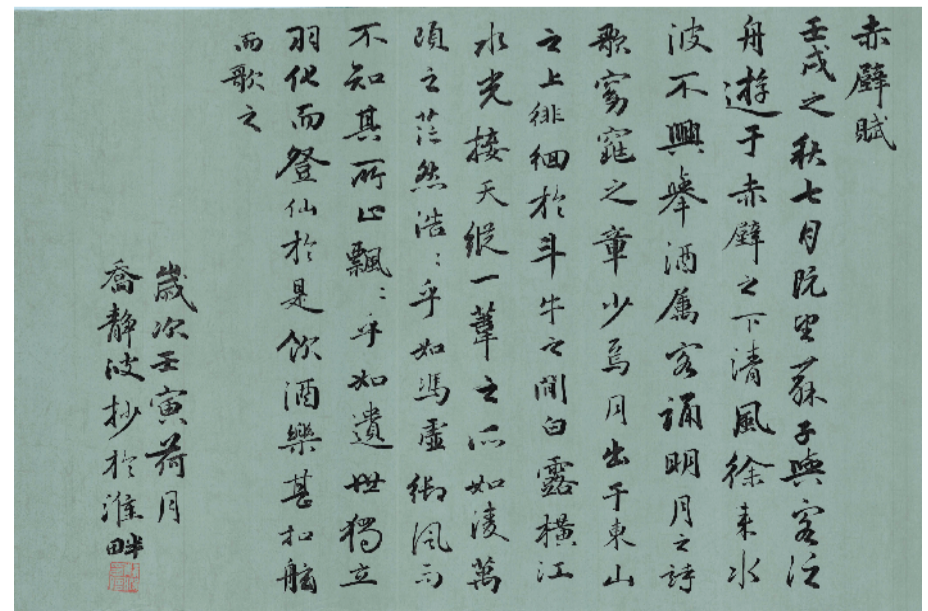 赤壁賦
壬戌之秋七月既望蘇子與客泛
舟遊于赤壁之下清風徐來水
波不興舉酒屬客誦明月之詩
歌窈窕之章少焉月出于東山
之上徘徊於斗牛之間白露橫江
水光接天縱一葦之所如淩萬
頃之茫然浩:乎如馮虛御風而
不知其所止飄:乎如遺世獨立
羽化而登仙於是飲酒樂甚扣舷
而歌之
歲次壬寅荷月
喬靜波抄於淮畔